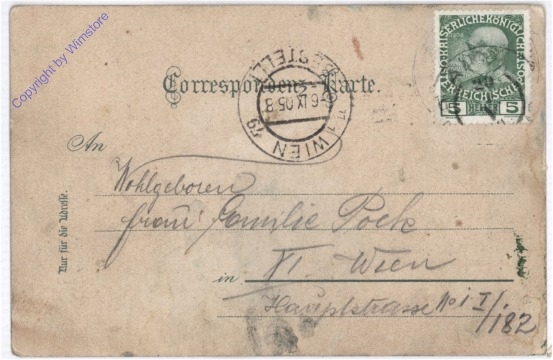 Copyright by Wimstore
KAISERLICHE KÖNIGLICHE
ÖSTERREICHISCHE
5 HELLER 5
Correspondenz-Karte.
BESTELLT
6 IX 05 8
WIEN 79
An
Wohlgeboren
Frau Emilie Pock
in VI. Wien
Hauptstrasse No 1 I/182
Nur für die Adresse.